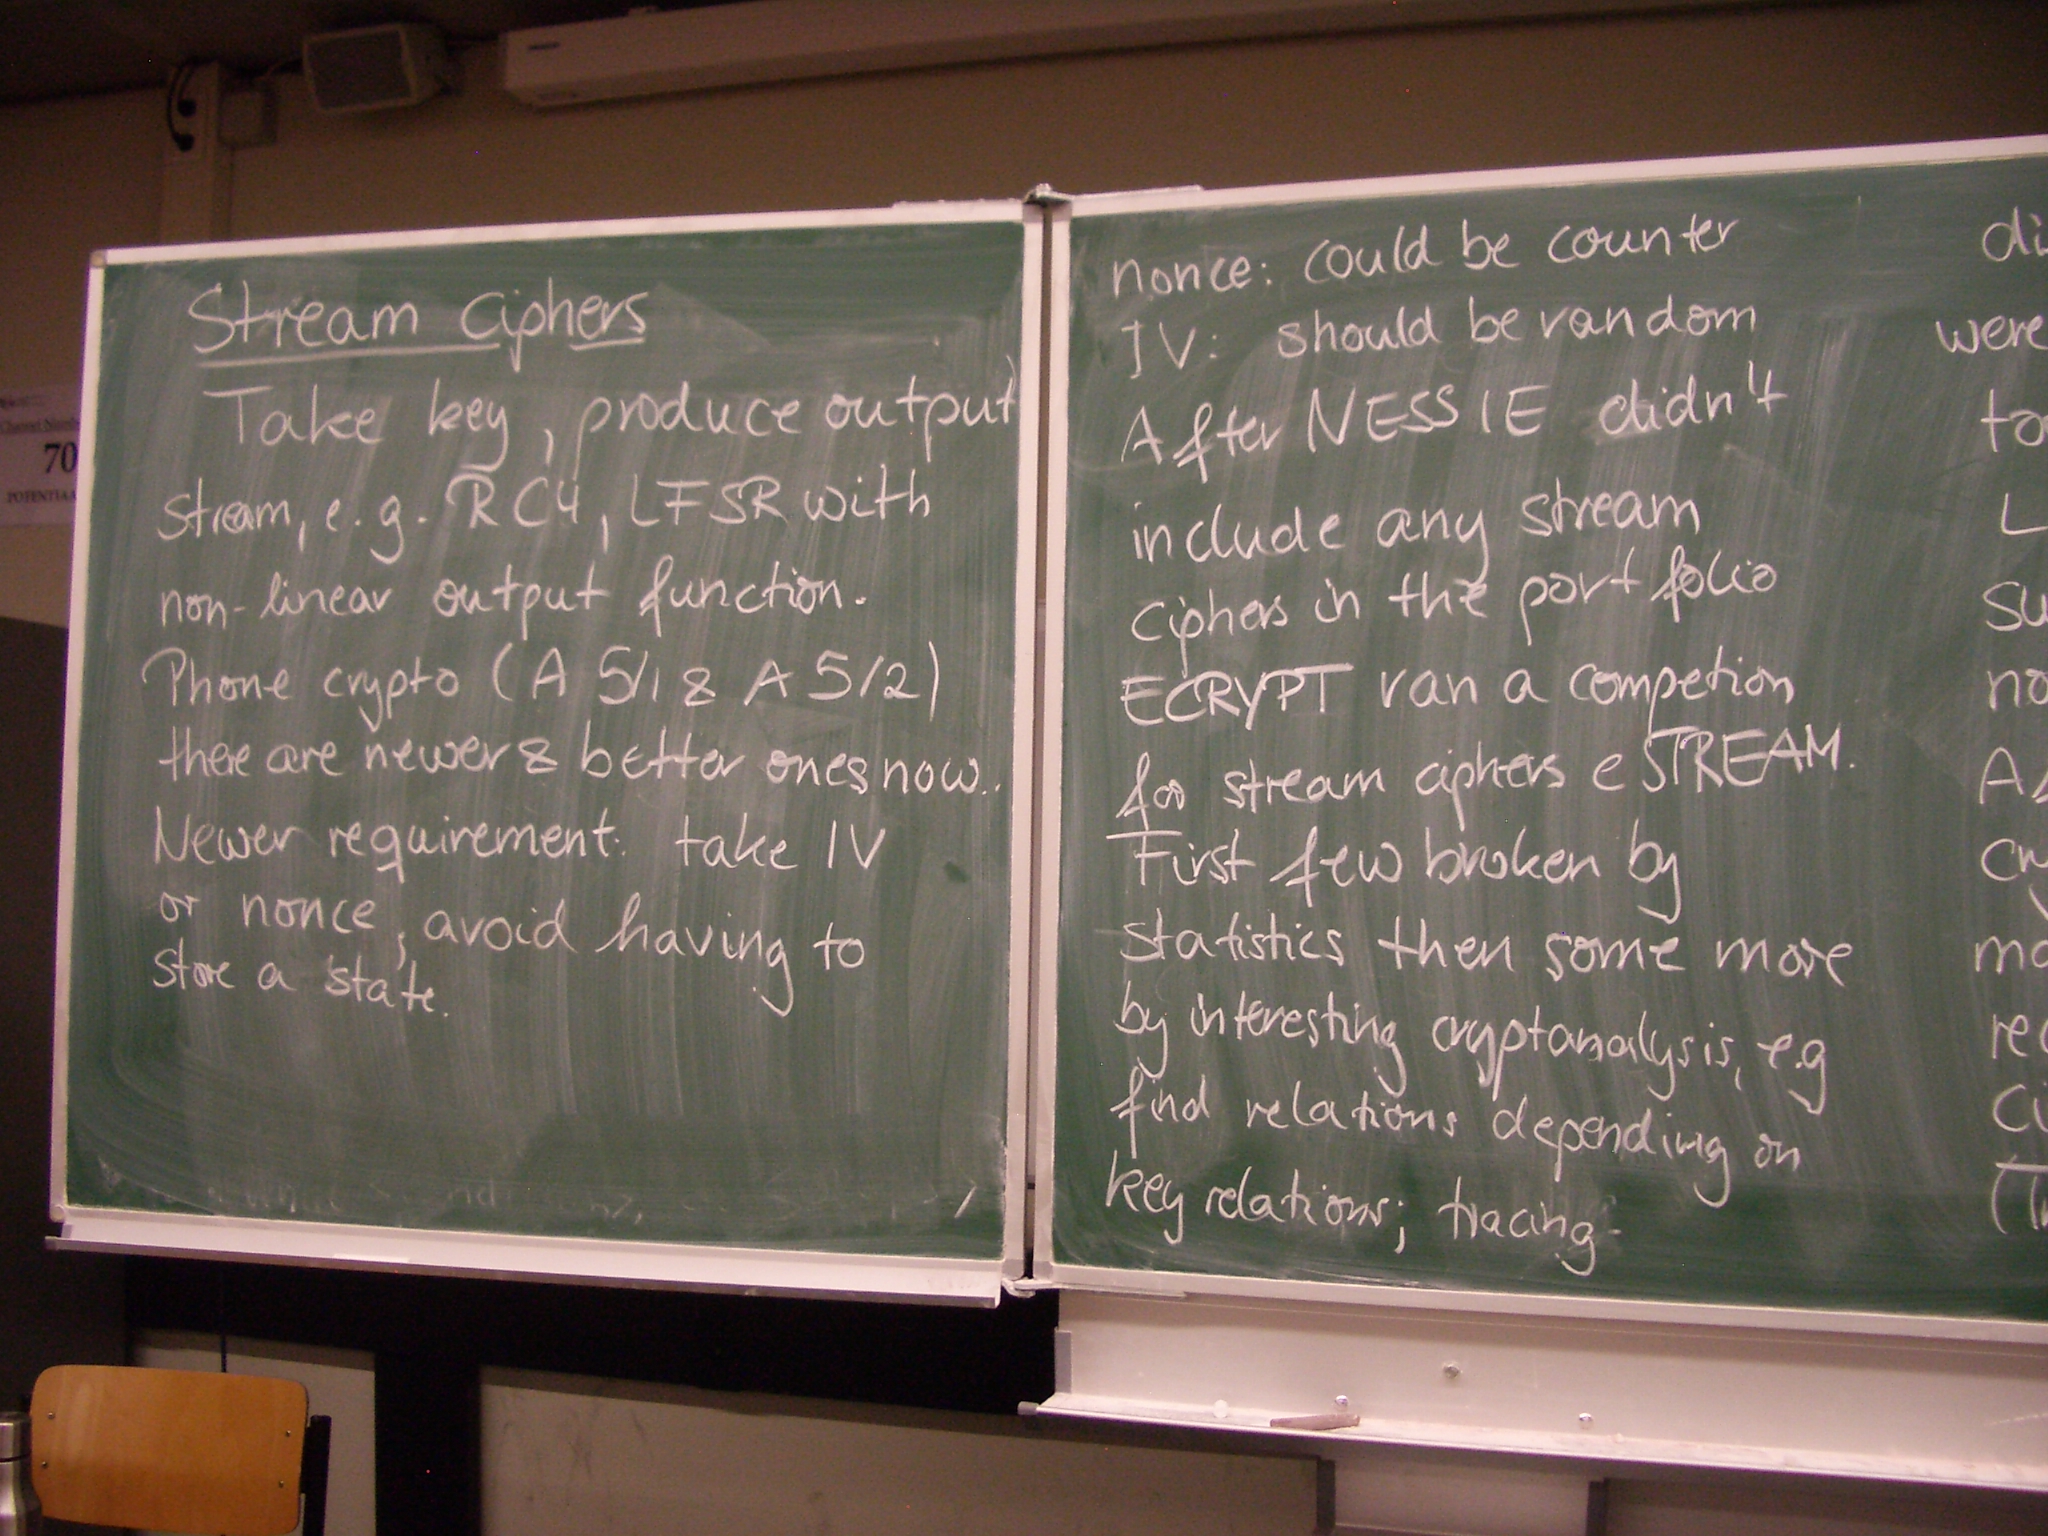 Stream Ciphers
Take key, produce output
stream, e.g. RC4, LFSR with
non-linear output function.
Phone crypto (A5/1 & A5/2)
there are newer & better ones now..
Newer requirement: take IV
or nonce, avoid having to
store a state.
nonce: could be counter
IV: should be random
After NESSIE didn't
include any stream
ciphers in the portfolio
ECRYPT ran a competion
for stream ciphers eSTREAM.
First few broken by
statistics then some more
by interesting cryptanalysis, e.g
find relations depending on
key relations; tracing
di
were
to
L
su
no
A
cr
mo
re
ci
(T
70
POTENTIAA